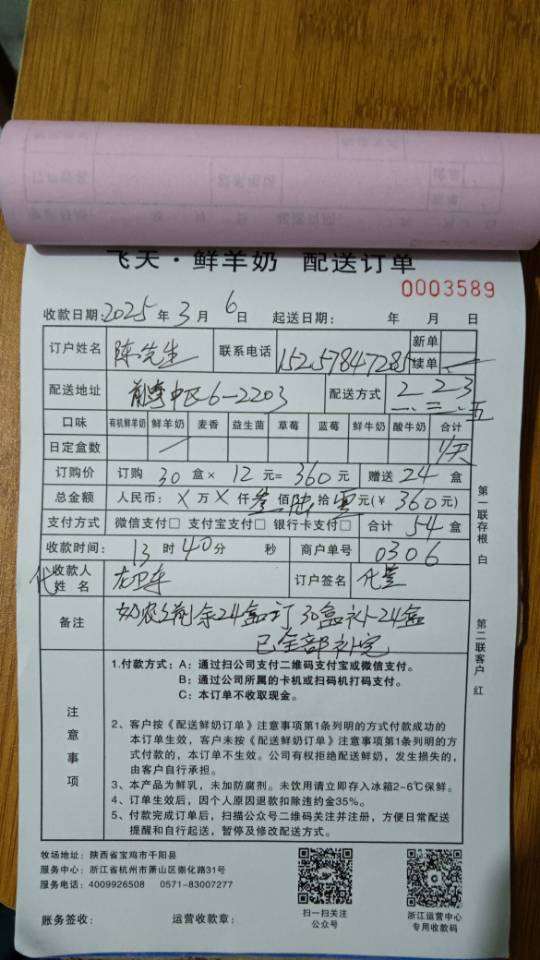 飞天·鲜羊奶 配送订单
0003589
收款日期:2025年3月6日 起送日期: 年 月 日
订户姓名 陈先生 联系电话 15257847285 新单
续单
配送地址 6-2203 配送方式 2 2 3
一.三.五
口味 有机鲜羊奶 鲜羊奶 麦香 益生菌 草莓 蓝莓 鲜牛奶 酸牛奶 合计
日定盒数 1/天
订购价 订购 30 盒× 12 元= 360 元 赠送 24 盒
总金额 人民币: X 万 X 仟 叁 佰 陆 拾 零 元(¥ 360 元)
支付方式 微信支付□ 支付宝支付□ 银行卡支付□ 合计 54 盒
收款时间: 13 时 40 分 秒 商户单号 0306
代收款人
姓 名 订户签名 代签
备注 剩余24盒订30盒补24盒
已全部补完
注意事项
1.付款方式:A:通过扫公司支付二维码支付宝或微信支付。
B:通过公司所属的卡机或扫码机打码支付。
C:本订单不收取现金。
2、客户按《配送鲜奶订单》注意事项第1条列明的方式付款成功的
本订单生效,客户未按《配送鲜奶订单》注意事项第1条列明的方
式付款的,本订单不生效。公司有权拒绝配送鲜奶,发生损失的,
由客户自行承担。
3、本产品为鲜乳,未加防腐剂。未饮用请立即存入冰箱2~6℃保鲜。
4、订单生效后,因个人原因退款扣除违约金35%。
5、付款完成订单后,扫描公众号二维码关注并注册,方便日常配送
提醒和自行起送,暂停及修改配送方式。
第一联存根 白
第二联客户 红
牧场地址:陕西省宝鸡市千阳县
服务中心:浙江省杭州市萧山区崇化路31号
服务电话:4009926508 0571-83007277
扫一扫关注
公众号
浙江运营中心
专用收款码
账务签收: 运营收款章: